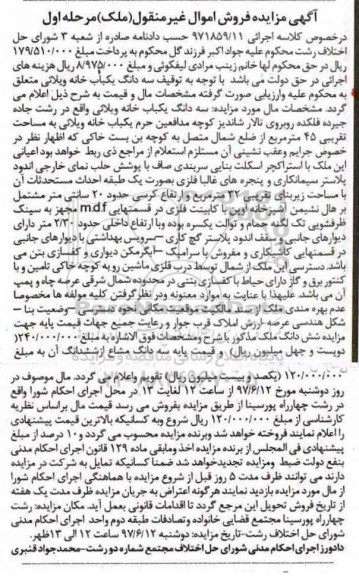 آگهی مزایده فروش اموال غیر منقول (ملک) مرحله اول
درخصوص کلاسه اجرائی ۹۷۱۸۵۹/۱۱ حسب دادنامه صادره از شعبه ۳ شورای حل
اختلاف رشت محکوم علیه جواد اکبر فرزند گل محکوم به پرداخت مبلغ ۱۷۹/۵۱۰/۰۰۰
ریال در حق محکوم لها خانم زینب مرادی لیفکوئی و مبلغ ۸/۹۷۵/۰۰۰ ریال هزینه های
اجرائی در حق دولت می باشد با توجه به توقیف سه دانگ یکباب خانه ویلائی متعلق
به محکوم علیه وارزیابی صورت گرفته مشخصات مال و قیمت به شرح ذیل اعلام می
گردد. مشخصات مال مورد مزایده: سه دانگ یکباب خانه ویلائی واقع در رشت جاده
جیرده فلکده روبروی تالار شاندیز کوچه مدافعین حرم یکباب خانه ویلائی به مساحت
تقریبی ۴۵ مترمربع از ضلع شمال متصل به کوچه بن بست خاکی که اظهار نظر در
خصوص جرایم وعقب نشینی آن مستلزم استعلام از مراجع ذی ربط خواهد بود اعیانی
این ملک با استراکچر اسکلت بنایی سربندی صاف با پوشش حلب نمای خارجی اندود
پلاستر سیمانکاری و پنجره های غالبا فلزی بصورت یک طبقه احداث مستحدثات آن
با مساحت زیربنای تقریبی ۳۲ مترمربع و ارتفاع کرسی حدود ۲۰ سانتی متر مشتمل
بر هال نشیمن آشپزخانه اوپن با کابینت فلزی در قسمتهایی mdf مجهز به سینک
ظرفشویی تک لگنه حمام و توالت یکسره بوده وبا ارتفاع داخلی حدود ۲/۳۰ متر دارای
دیوارهای جانبی و سقف اندود پلاستر گچ کاری – سرویس بهداشتی با دیوارهای جانبی
در قسمتهایی کاشیکاری و مفروش با سرامیک – آبگرمکن دیواری و کفسازی بتن می
باشد. دسترسی این ملک از شمال توسط درب فلزی ماشین رو به کوچه خاکی تامین و با
کنتور برق و گاز دارای حیاط با کفسازی بتنی در محدوده شمال شرقی عرصه چاه و پمپ
آن می باشد علیهذا با عنایت به موارد معنونه ودر نظر گرفتن کلیه مولفه ها مخصوصا
عدم بهره مندی ملک از سند مالکیت موقعیت مکانی نحوه دسترسی وضعیت بنا –
شکل هندسی عرصه ارزش املاک قرب جوار و رعایت جمیع جهات قیمت پایه جهت
مزایده شش دانگ ملک مذکور با شرح ومشخصات فوق الاشاره به مبلغ ۲۴۰/۰۰۰/۰۰۰
دویست و چهل میلیون ریال) و قیمت پایه سه دانگ مشاع از ششدانگ آن به مبلغ
۱۲۰/۰۰۰/۰۰۰ (یکصد و بیست میلیون ریال) تقویم واعلام می گردد. مال موصوف در
روز دوشنبه مورخ ۹۷/۶/۱۲ از ساعت ۱۲ لغایت ۱۳ در محل اجرای احکام شورا واقع
در رشت چهارراه پورسینا از طریق مزایده بفروش می رسد قیمت مال براساس نظریه
کارشناسی از مبلغ ۱۲۰/۰۰۰/۰۰۰ ریال شروع وبه کسانیکه بالاترین قیمت پیشنهادی
را اعلام نمایند فروخته خواهد شد وبرنده مزایده محسوب می گردد و ۱۰ درصد از مبلغ
پیشنهادی فی المجلس از برنده مزایده اخذ ومابقی ماده ۱۲۹ قانون اجرای احکام مدنی
بنفع دولت ضبط ومزایده تجدیدخواهد شد ضمنا کسانیکه تمایل به شرکت در مزایده
دارند می توانند ظرف مدت ۵ روز قبل از شروع مزایده با هماهنگی اجرای احکام شورا
از مال مورد مزایده بازدید نمایند هرگونه اعتراض به جریان مزایده ظرف مدت یک هفته
از تاریخ فروش تحویل این مرجع گردد تا اقدامات قانونی بعمل آید. مکان مزایده: رشت
چهارراه پورسینا مجتمع قضایی خانواده وتصادفات طبقه دوم واحد اجرای احکام مدنی
شورای حل اختلاف رشت-تاریخ مزایده: دوشنبه ۹۷/۶/۱۲ ساعت ۱۲ الی ۱۳ظهر.
دادورز اجرای احکام مدنی شورای حل اختلاف مجتمع شماره دو رشت-محمدجواد قنبری